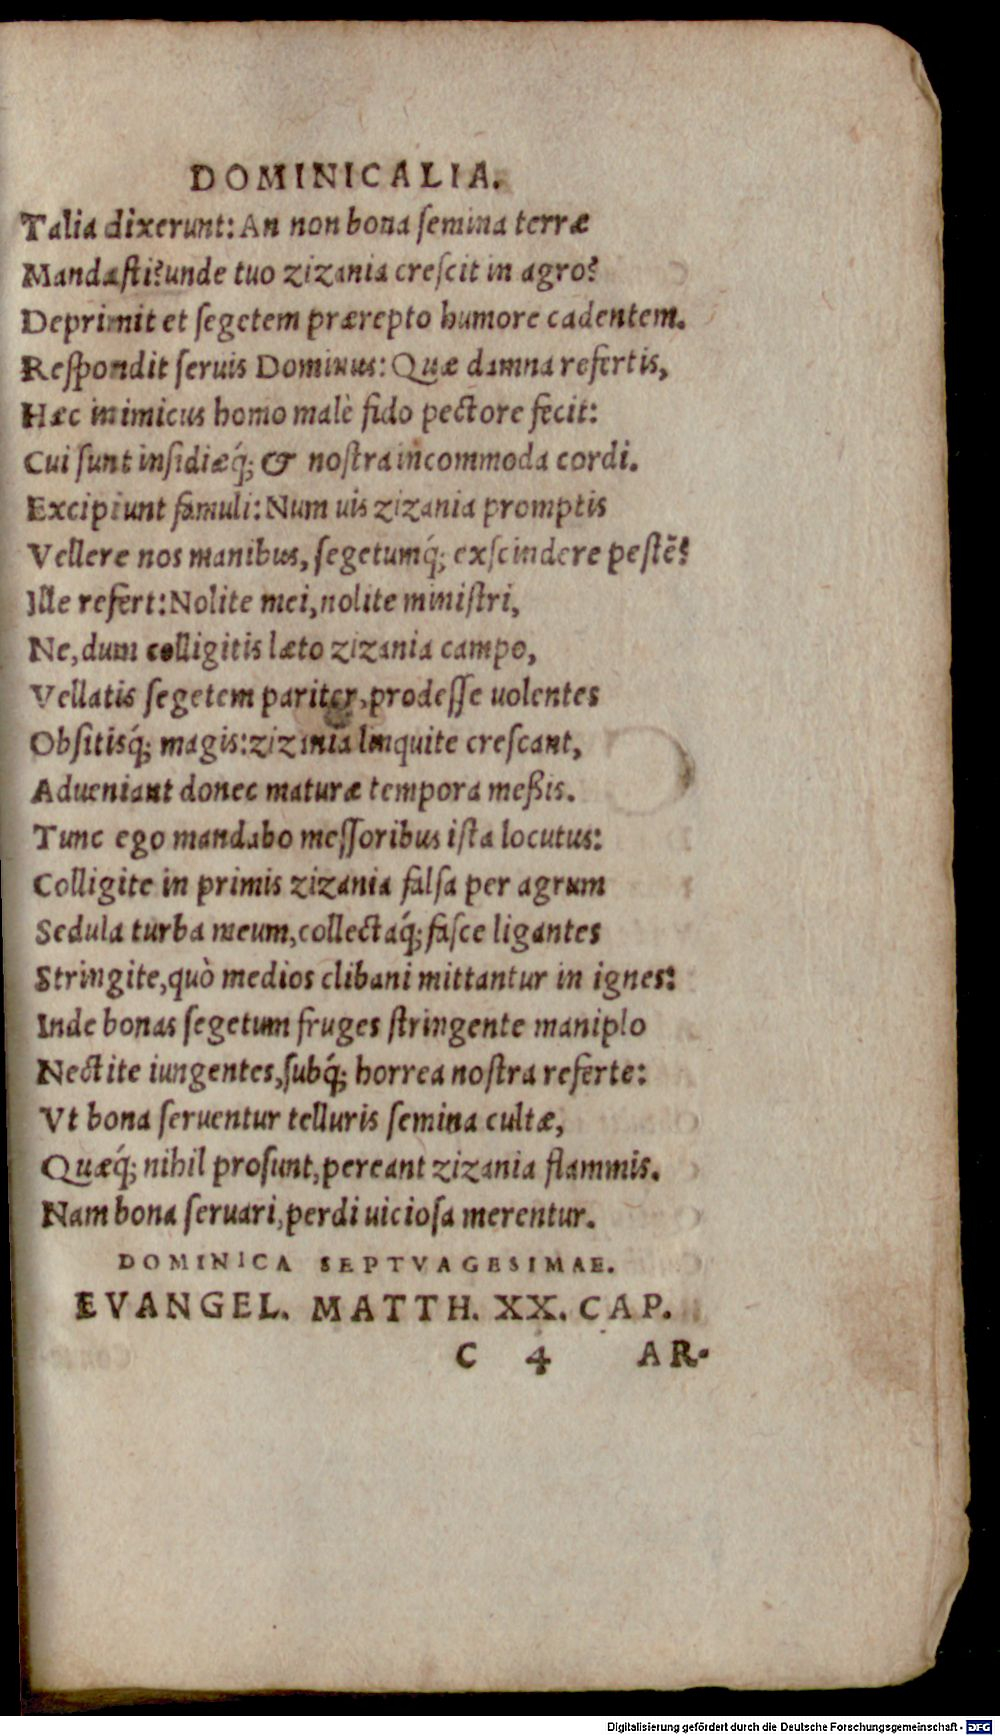 DOMINICALIA.
Talia dixerunt: An non bona ſemina terræ
Mandaſti? unde tuo zizania creſcit in agro?
Deprimit et ſegetem prærepto humore cadentem.
Reſpondit ſeruis Dominus: Quæ damna refertis,
Hæc inimicus homo malè fido pectore fecit:
Cui ſunt inſidiæq́; & noſtra incommoda cordi.
Excipiunt famuli: Num uis zizania promptis
Vellere nos manibus, ſegetumq́; exſcindere peſtē?
Ille refert: Nolite mei, nolite miniſtri,
Ne, dum colligitis læto zizania campo,
Vellatis ſegetem pariter, prodeſſe uolentes
Obſitisq́; magis: zizania linquite creſcant,
Adueniant donec maturæ tempora meßis.
Tunc ego mandabo meſſoribus iſta locutus:
Colligite in primis zizania falſa per agrum
Sedula turba meum, collectaq́; faſce ligantes
Stringite, quò medios clibani mittantur in ignes:
Inde bonas ſegetum fruges ſtringente maniplo
Nectite iungentes, ſubq́; horrea noſtra referte:
Vt bona ſeruentur telluris ſemina cultæ,
Quæq́; nihil proſunt, pereant zizania flammis.
Nam bona ſeruari, perdi uicioſa merentur.
DOMINICA SEPTVAGESIMAE.
EVANGEL. MATTH. XX. CAP.
C 4 AR-
Digitalisierung gefördert durch die Deutsche Forschungsgemeinschaft - DFG